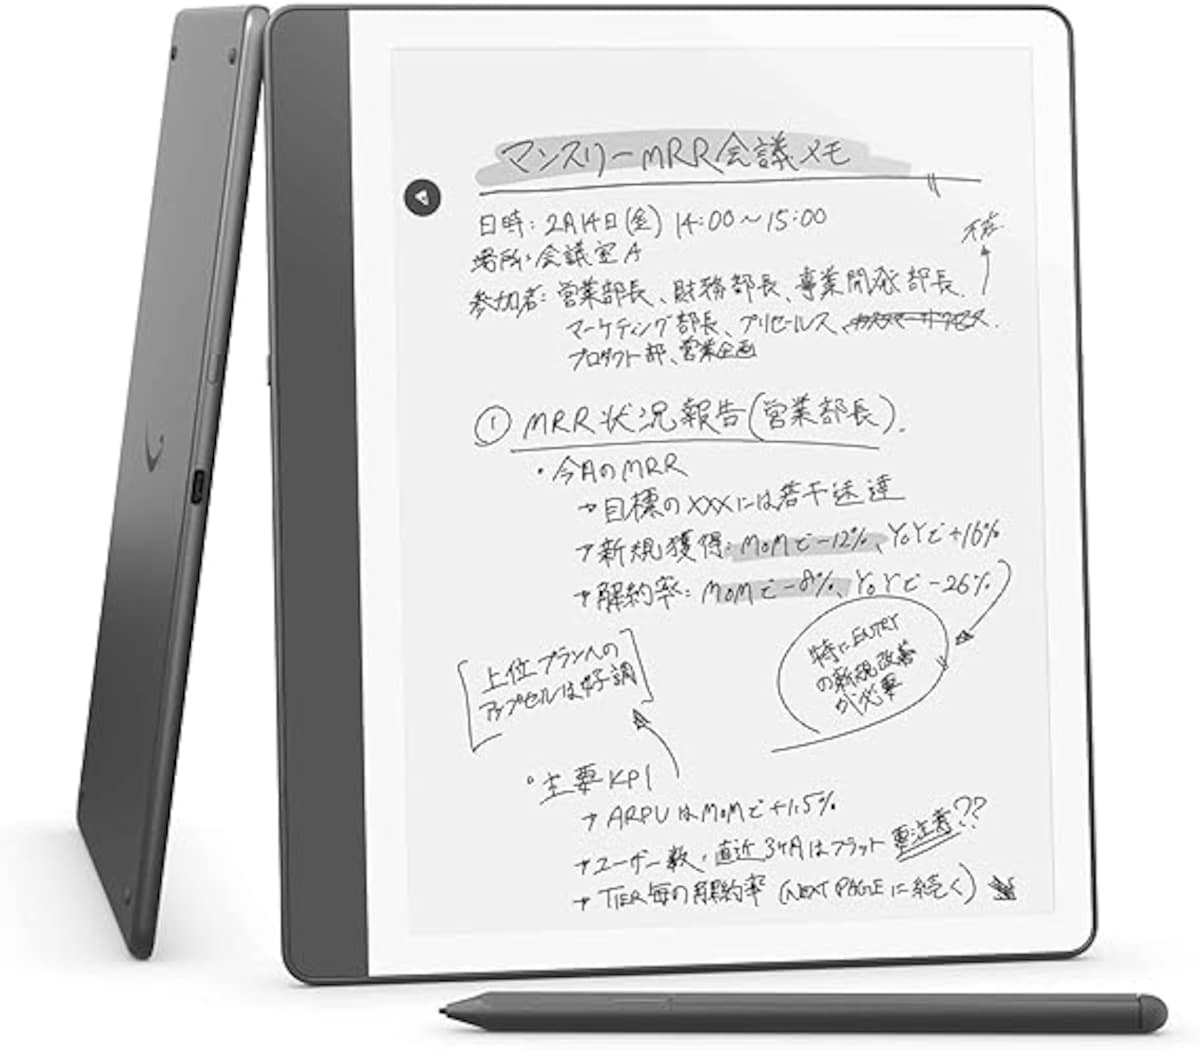 マンスリーMRR会議メモ
日時：2月14日(金) 14:00～15:00
場所：会議室A
参加者：営業部長、財務部長、事業開発部長、
マーケティング部長、プリセールス、カスタマーサクセス.
プロダクト部、営業企画
① MRR状況報告(営業部長).
・今月のMRR
→目標のXXXには若干未達
→新規獲得：MoMで-12%、YoYで+16%
→解約率：MoMで-8%、YoYで-26%
特にENTRY
の新規改善
が必要
[上位プランへの
アップセルは好調]
・主要KPI
→ARPUはMoMで+1.5%
→ユーザー数・直近3ケ月はフラット 要注意??
→TIER毎の解約率 (NEXT PAGEに続く)